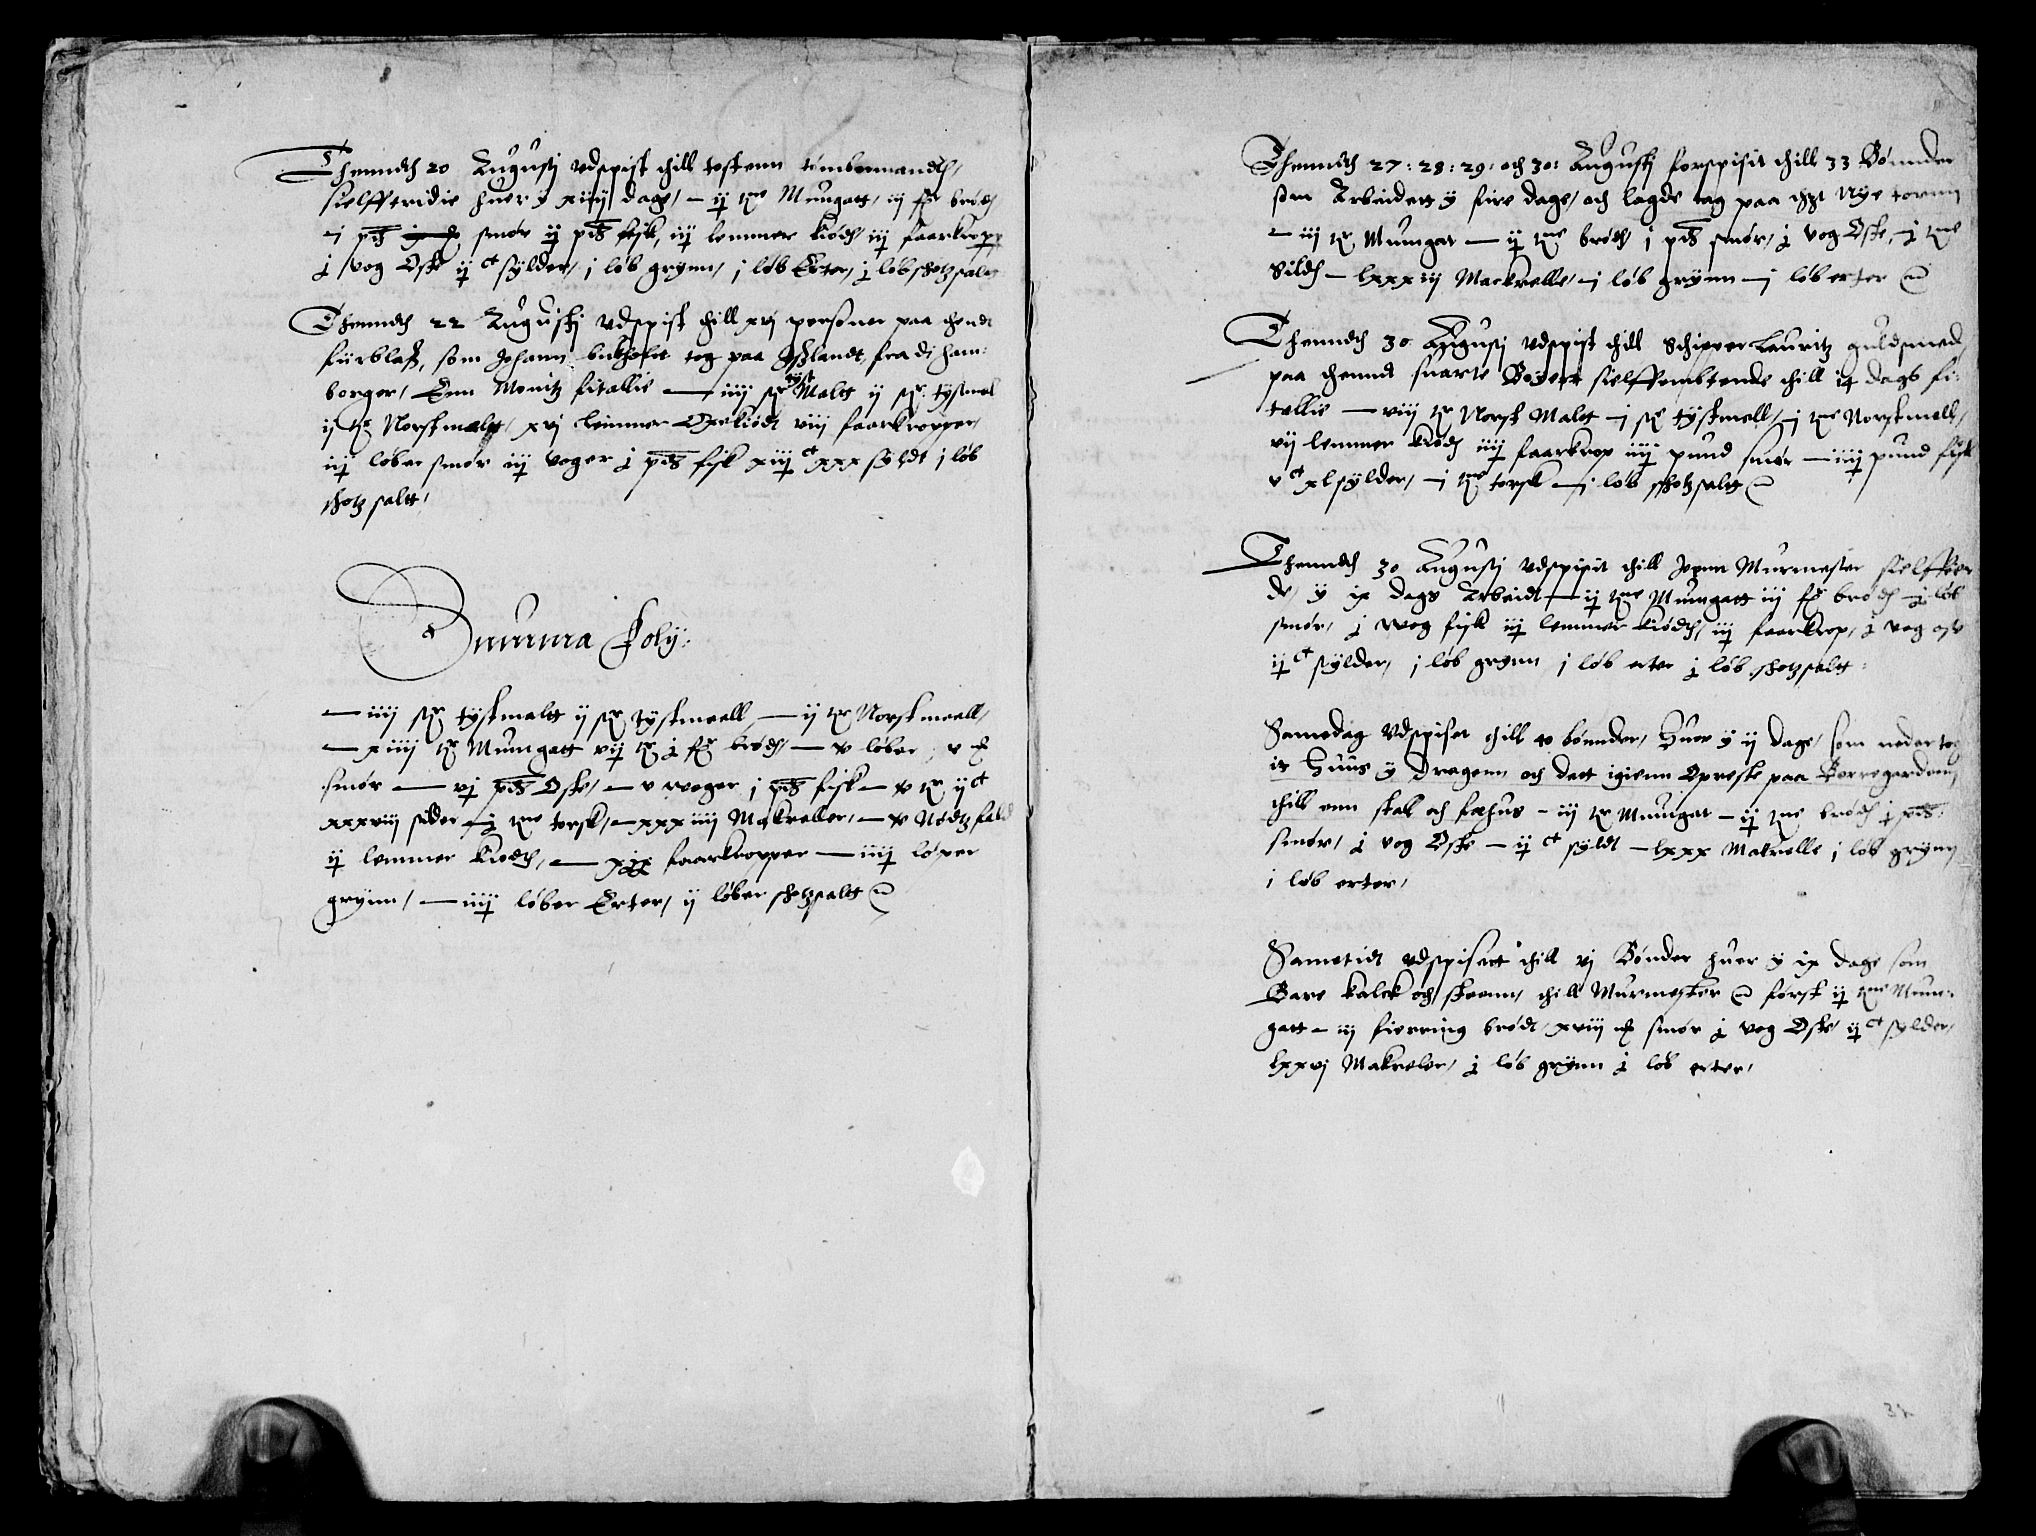 Thenndh 20 Augustj vdspist thill testenn tømbermandh,
sielfftridie huer y xiiij dage, – ij tne Mungatt, iij fr brødh
– j pd smør ij pd fisk, iij lemmer kiødh iij faarkropp
j vog Oste ij ct sylder, j løb grynn, j løb Erter, j løb shotzsalt
Thenndh 22 Augustj vdspist thill xvj personer paa thend
fiirblass, som Johann tog paa Isslandt, fra di ham:
borger, Enn Monitz fitallie – iiij str tyst Maltt ij str. tystmel
ij tr Norskmaltt, xvj lemmer Oxekiødt viij faarkropper,
iij løber smør iij voger j pd fisk xiij ct xxx syldt j løb
shotz saltt,
Summa Foly:
– iiij str tyskmaltt ij str tyskmeell – ij tr Norskmeell,
– xiiij tr Mumgatt vij tr j fr brødh, – v løber, v
smør – vj pd Oste, – v woger j pd fisk – v tr ij ct
xxxviij silder – j tne torsk, – xxxiiij Makreller, – v Nødtzfald
ij lemmer kiødh, – xix faarkropper – iiij løper
grynn, – iiij løber Erter, ij løber shotzsaltt
Thenndh 27: 28: 29: och 30: Augustj forspisit thill 33 Bønnder
som Arbeidett y fire dage, och lagde tag paa thet Nye tornn
– iij tr Mumgat – ij tne brødh j pd smør, j vog Oste, – j tne
Sildh – lxxxij Mackrelle, – j løb grynn – j løb erter
Thenndh 30 Augustj vdspist thill Schipper Lauritz guldsmed,
paa thennd suarte Boyertt sielffembtende thill 14 dags fi:
tallie – viij tr Norsk Malt – j str tyskmell, – j tne Norskmell,
vij lemmer kiødh iiij faarkrop iiij pund smør – iiij pund fisk
v ct xl sylder, – j tne torsk – j løb shotzsaltt
Thenndh 30 Augustj vdspisit thill Jepnn Murmester sielffier
de, y ix dags Arbeidt – ij tne Mumgatt iij fr brødh – j løb
smør, j wog fisk iij lemmer kiødh, iij faarkrop, j vog ost
ij ct sylder, j løb grynn j løb erter j løb shotzsaltt:
Samedag vdspiset thill 40 bønnder, Huer y ij dage, som neder tog
it Huus y Dragenn och dett igienn Opreste paa Borregardenn
thill enn stal och fæhus – iij tr Mumgat – ij tne brødh j pd:
smør, j vog Oste – ij ct syldt – lxxx Makrelle j løb grynn
j løb erter,
Sametidt vdspisett thill vj Bønder huer y ix dage som
Bare kalck och steenn, thill Murmester først ij tne Mum:
gatt – iij fierring brødt, xviij smør j vog Oste ij ct sylder,
lxxvj Makreler, j løb grynn j løb erter,